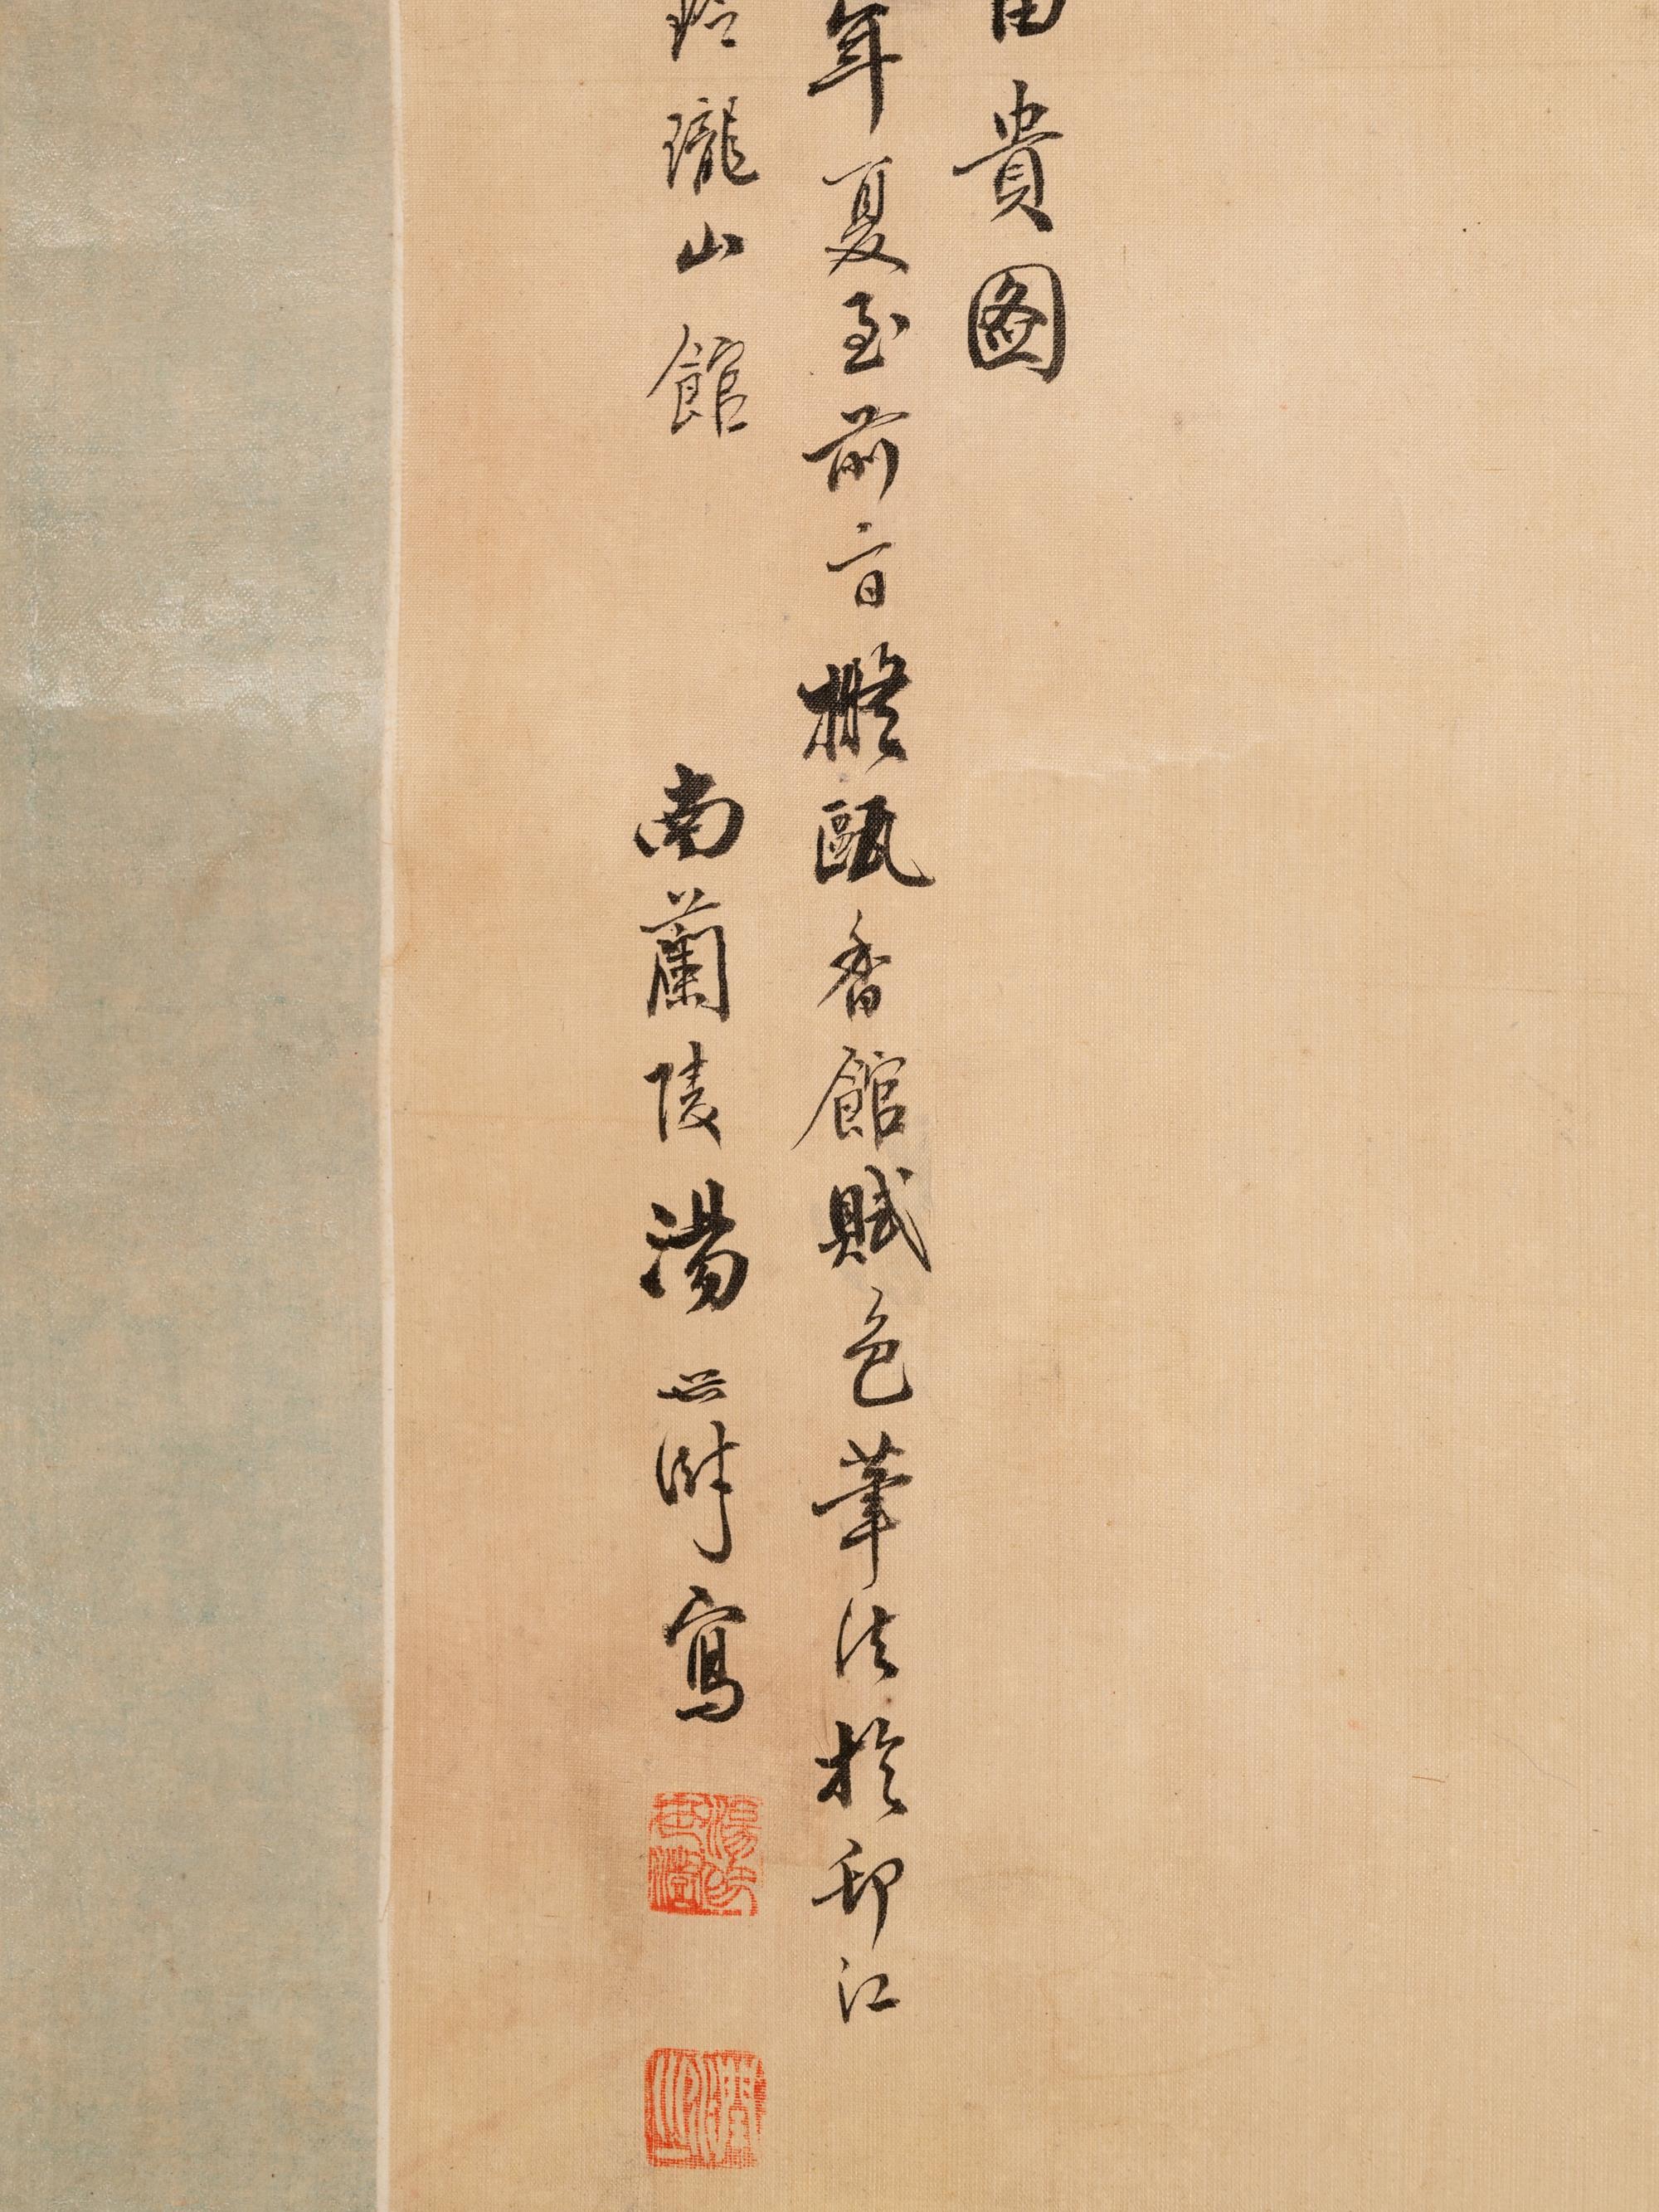 貴圖
年夏至前二日橅甌香館賦色筆法於邗江
瓏山館 南蘭陵湯世澍寫
湯世澍印